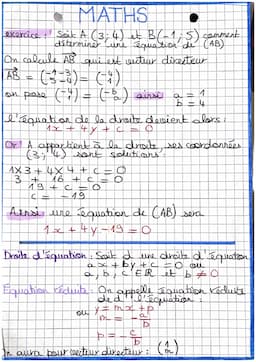 MATHS
exercice : Soit A (3; 4) et B(-1; 5) comment
déterminer une équation de (AB)
On calcule AB qui est vecteur directeur
AB = (-1-3 / 5-4) = (-4 / 1)
on pose (-4 / 1) = (-b / a) ainsi a = 1
b = 4
L'équation de la droite devient alors :
1x + 4y + c = 0
Or A appartient à la droite, ses coordonnées
(3; 4) sont solutions :
1x3 + 4x4 + c = 0
3 + 16 + c = 0
19 + c = 0
c = -19
Ainsi une équation de (AB) sera
1x + 4y - 19 = 0
Droite d'équation : Soit d une droite d'équation
ax + by + c = 0 où
a, b, c ∈ ℝ et b ≠ 0
Equation réduite : On appelle équation réduite
de d l'équation :
ou y = mx + p
m = -a/b
p = -c/b
On aura pour vecteur directeur : (1 / m)